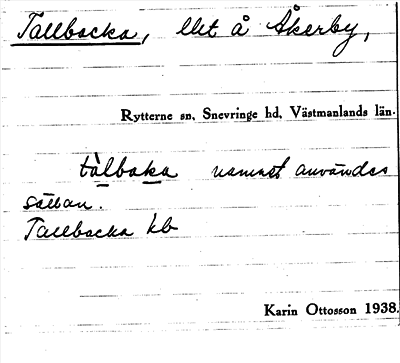 Tallbacka, lht å Åkerby,
Rytterne sn, Snevringe hd, Västmanlands län.
tàlbaka namnet användes
sällan.
Tallbacka kb
Karin Ottosson 1938.